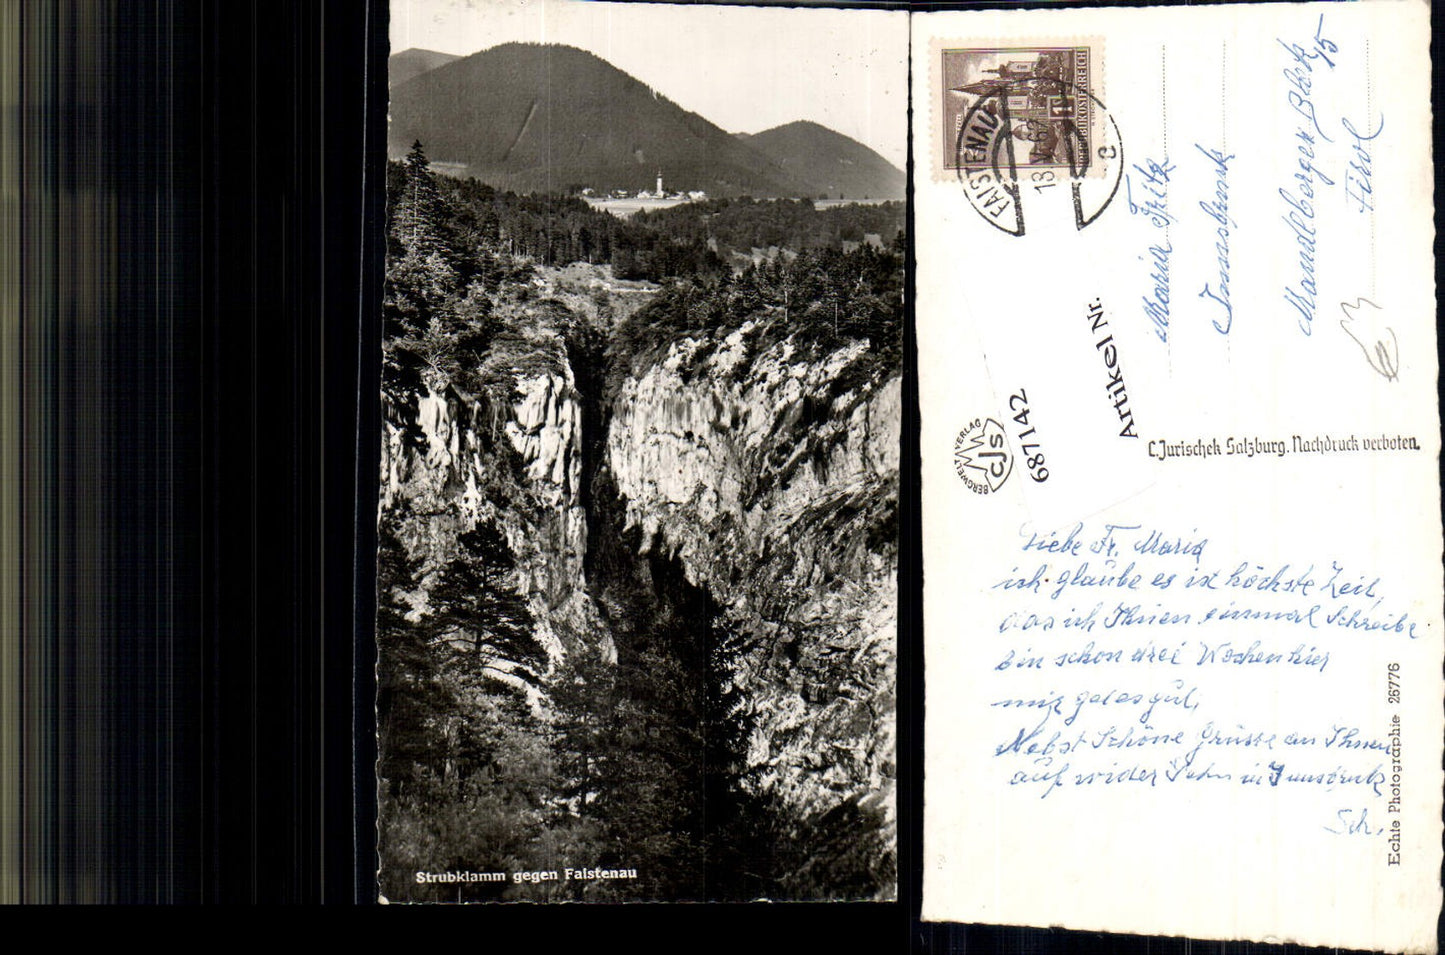 Strubklamm gegen Faistenau
REPUBLIK ÖSTERREICH
FAISTENAU
18.V.63
Maria Fritz
Innsbruck
Mandelberger Block
15
Tirol
63
Artikel Nr.
687142
BERGWELT VERLAG
CJS
C.Jurischek Salzburg. Nachdruck verboten.
Liebe Fr. Maria
ich glaube es ist höchste Zeit,
das ich Ihnen einmal Schreibe
bin schon drei Wochen hier
mir gedes gut,
Nebst Schöne Grüsse an Ihnen
auf wider Sehn in Innsbruck
Sch.
Echte Photographie 26776